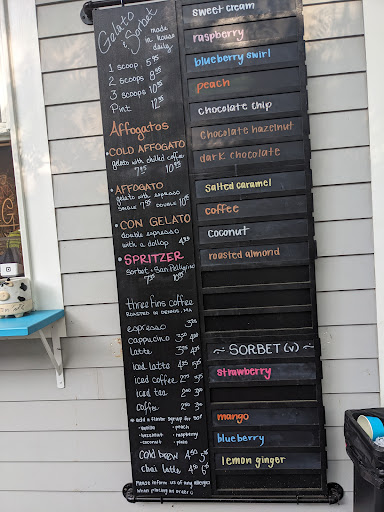 Gelato
& Sorbet
made
in house
daily
1 scoop 5.95
2 scoops 8.95
3 scoops 10.95
Pint 12.95
Affogatos
• COLD AFFOGATO
gelato with chilled coffee
7.95 10.95
• AFFOGATO
gelato with espresso
single 7.95 double 10.95
• CON GELATO
double espresso
with a dollop 4.95
• SPRITZER
Sorbet + San Pellegrino
7.95 10.95
three fins coffee
ROASTED IN DENNIS, MA
espresso
cappuccino
latte
iced latte
iced coffee
iced tea
coffee
add a flavor syrup for 50¢
• vanilla • peach
• hazelnut • raspberry
• coconut
cold brew
chai latte
Please inform us of any allergies
when placing an order
sweet cream
raspberry
blueberry swirl
peach
chocolate chip
chocolate hazelnut
dark chocolate
salted caramel
coffee
coconut
roasted almond
SORBET (v)
strawberry
mango
blueberry
lemon ginger